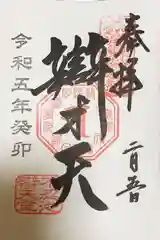 奉拝
二月五日
辨才天
令和五年癸卯